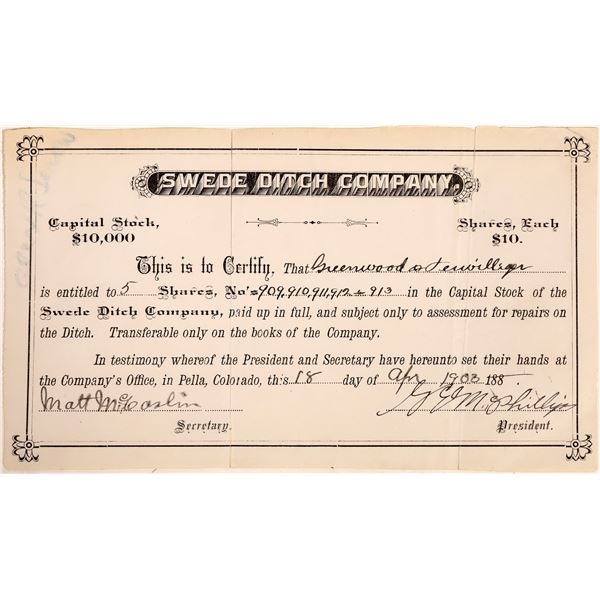 SWEDE DITCH COMPANY.
Capital Stock, $10,000
Shares, Each $10.
This is to Certify, That Greenwood & Terwilleger
is entitled to 5 Shares, No's 909,910,911,912 & 913 in the Capital Stock of the
Swede Ditch Company, paid up in full, and subject only to assessment for repairs on
the Ditch. Transferable only on the books of the Company.
In testimony whereof the President and Secretary have hereunto set their hands at
the Company's Office, in Pella, Colorado, this 18 day of Apr 1903 188
Matt McCaslin
Secretary.
President.